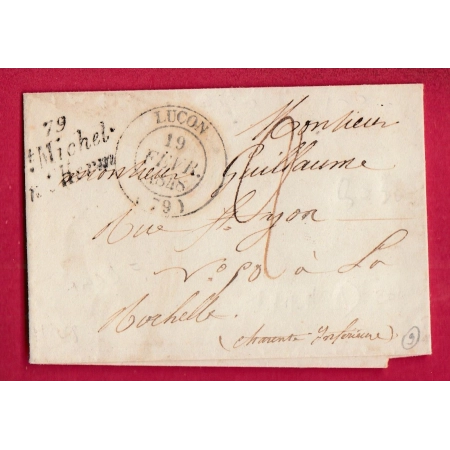 79
St Michel.
en l'herm
LUÇON
19
FEVR.
1845
(79)
2
Monsieur
Guillaume
Rue St. Yon
N.o 50 à La
Rochelle.
(Charente Inférieure)